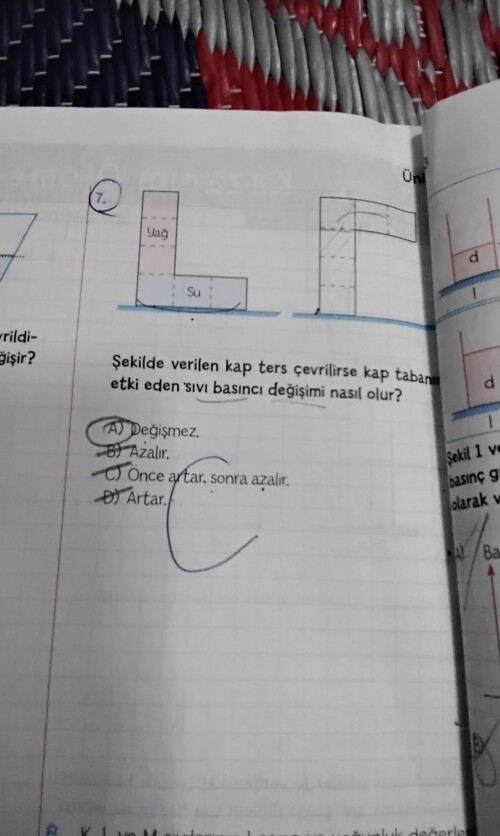 Üni
7.
Yağ
Su
d
d
vrildi-
ğişir?
Şekilde verilen kap ters çevrilirse kap tabanın
etki eden sıvı basıncı değişimi nasıl olur?
A) Değişmez.
B) Azalır.
C) Önce artar, sonra azalır.
D) Artar.
Şekil 1 ve
basınç g
olarak v
A)
Ba
8.